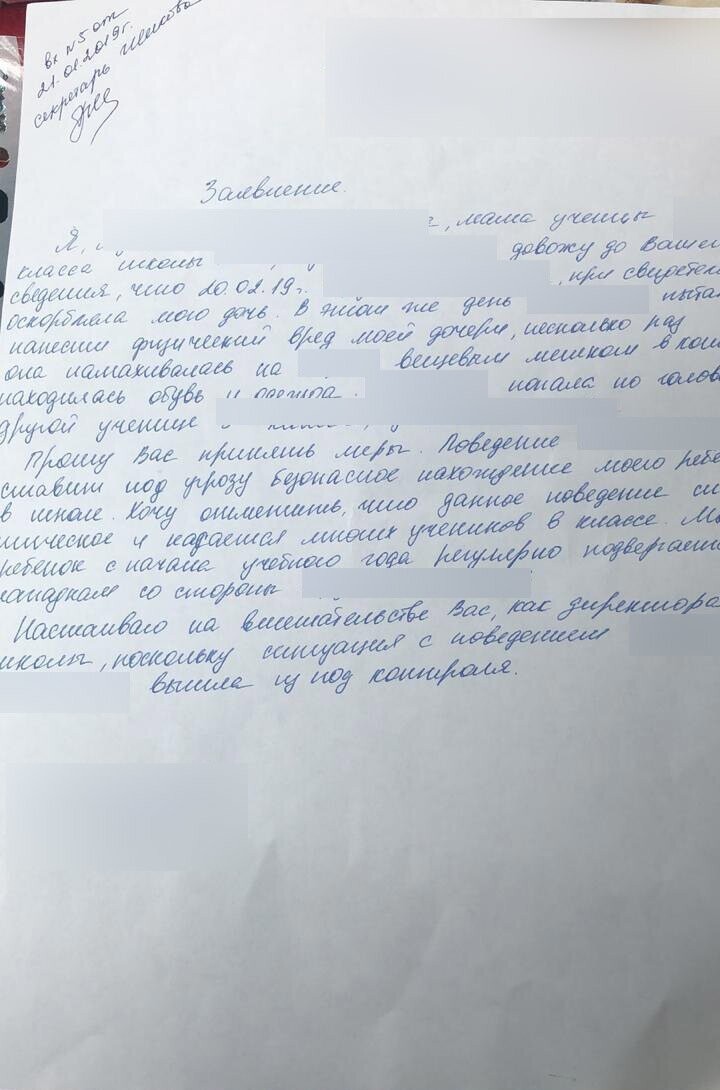 вх N 5 от
21.02.2019г.
секретарь
Заявление.
Я, , мама ученицы
класса школы довожу до Вашег
сведения, что 20.02.19г. , при свидетел
оскорбляла мою дочь. В этот же день пытал
нанести физический вред моей дочери, несколько раз
она намахивалась на вещевым мешком в кот
находилась обувь и одежда. попала по голов
другой ученице
Прошу Вас принять меры. Поведение
ставит под угрозу безопасное нахождение моего ребе
в школе. Хочу отметить, что данное поведение сис
тическое и касается многих учеников в классе. Мо
ребенок с начала учебного года регулярно подвергаетс
нападкам со стороны
Настаиваю на вмешательстве Вас, как директора
школы, поскольку ситуация с поведением
вышла из под контроля.